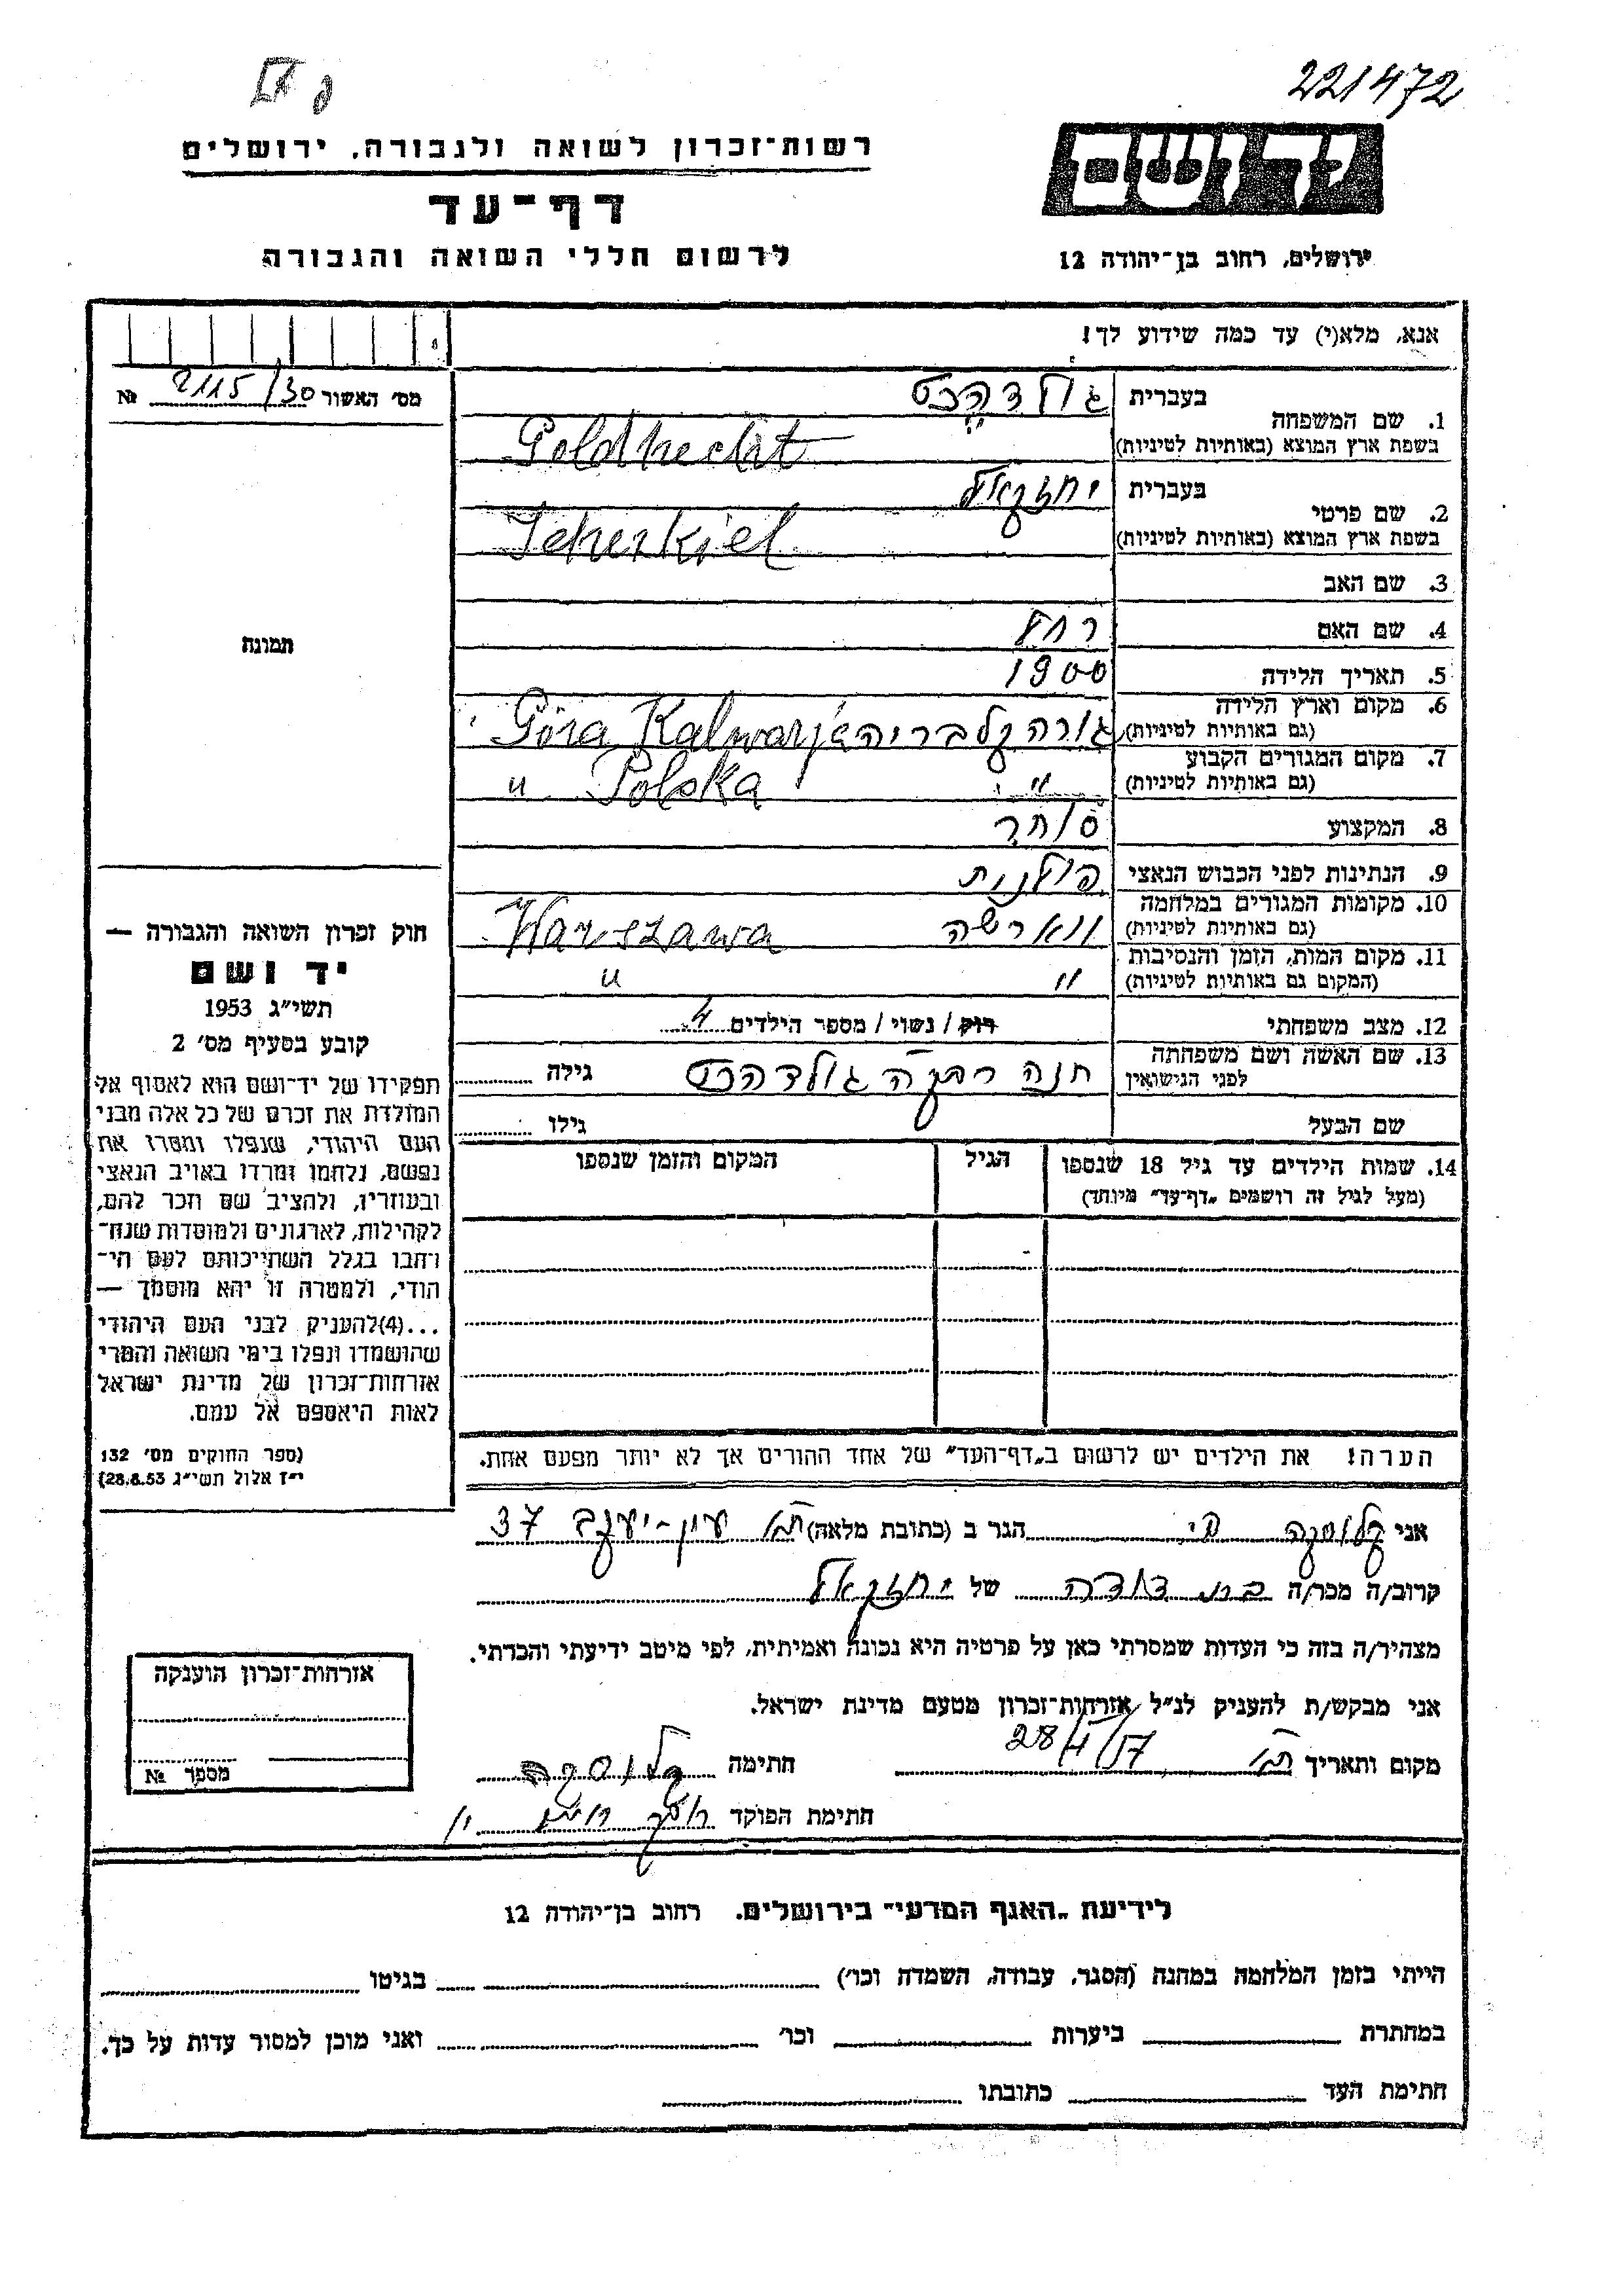 221472
רשות-זכרון לשואה ולגבורה, ירושלים
דף-עד
לרשום חללי השואה והגבורה
ירושלים, רחוב בן-יהודה 12
אנא, מלא(י) עד כמה שידוע לך!
מס׳ האשור 2115/30 №
1. שם המשפחה
בעברית גולדהכט
בשפת ארץ המוצא (באותיות לטיניות) Goldhecht
2. שם פרטי
בעברית יחזקאל
בשפת ארץ המוצא (באותיות לטיניות) Jcheskiel
3. שם האב
4. שם האם רחל
5. תאריך הלידה 1900
6. מקום וארץ הלידה (גם באותיות לטיניות) גורה קלבריה Góra Kalwarja
7. מקום המגורים הקבוע (גם באותיות לטיניות) " Polska "
8. המקצוע סוחר
9. הנתינות לפני הכבוש הנאצי פולנית
10. מקומות המגורים במלחמה (גם באותיות לטיניות) ווארשה Warszawa
11. מקום המות, הזמן והנסיבות (המקום גם באותיות לטיניות) " "
12. מצב משפחתי רוק / נשוי / מספר הילדים 4
13. שם האשה ושם משפחתה לפני הנישואין חנה רבקה גולדהכט גילה
שם הבעל גילו
14. שמות הילדים עד גיל 18 שנספו הגיל המקום והזמן שנספו
(מעל לגיל זה רושמים „דף-עד" מיוחד)
תמונה
חוק זכרון השואה והגבורה —
יד ושם
תשי״ג 1953
קובע בסעיף מס׳ 2
תפקידו של יד-ושם הוא לאסוף אל
המולדת את זכרם של כל אלה מבני
העם היהודי, שנפלו ומסרו את
נפשם, נלחמו ומרדו באויב הנאצי
ובעוזריו, ולהציב שם וזכר להם,
לקהילות, לארגונים ולמוסדות שנח-
רחבו בגלל השתייכותם לעם הי-
הודי, ולמטרה זו יהא מוסמך —
...(4)להעניק לבני העם היהודי
שהושמדו ונפלו בימי השואה והמרי
אזרחות-זכרון של מדינת ישראל
לאות היאספם אל עמם.
(ספר החוקים מס׳ 132
י״ז אלול תשי״ג 28.8.53)
הערה! את הילדים יש לרשום ב„דף-העד" של אחד ההורים אך לא יותר מפעם אחת.
אני קלוסקה הגר ב (כתובת מלאה) ת"א עין-יעקב 37
קרוב/ה מכר/ה בת דודה של יחזקאל
מצהיר/ה בזה כי העדות שמסרתי כאן על פרטיה היא נכונה ואמיתית, לפי מיטב ידיעתי והכרתי.
אני מבקש/ת להעניק לנ״ל אזרחות-זכרון מטעם מדינת ישראל.
מקום ותאריך ת"א 28/ /57 חתימה קלוסקה
חתימת הפוקד
אזרחות-זכרון הוענקה
מספר №
לידיעת „האגף המדעי" בירושלים, רחוב בן-יהודה 12
הייתי בזמן המלחמה במחנה (הסגר, עבודה, השמדה וכו׳) בגיטו
במחתרת ביערות וכו׳ ואני מוכן למסור עדות על כך.
חתימת העד כתובתו